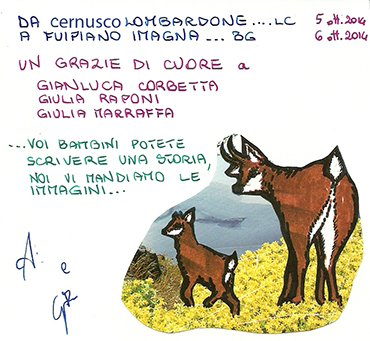 DA cernusco LOMBARDONE....LC 5 ott. 2014
A FUIPIANO IMAGNA... BG 6 ott. 2014
UN GRAZIE DI CUORE a
GIANLUCA CORBETTA
GIULIA RAPONI
GIULIA MARRAFFA
...VOI BAMBINI POTETE
SCRIVERE UNA STORIA,
NOI VI MANDIAMO LE
IMMAGINI...
A. e